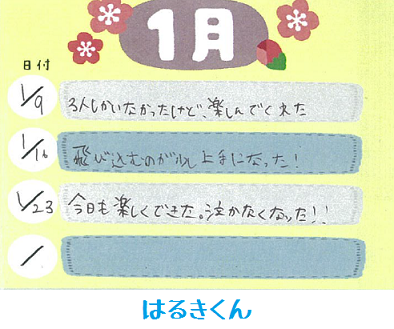 1月
日付
1/9
3人しかいなかったけど、楽しんでくれた
1/16
飛び込むのが少し上手になった!
1/23
今日も楽しくできた。泣かなくなった!!
/
はるきくん